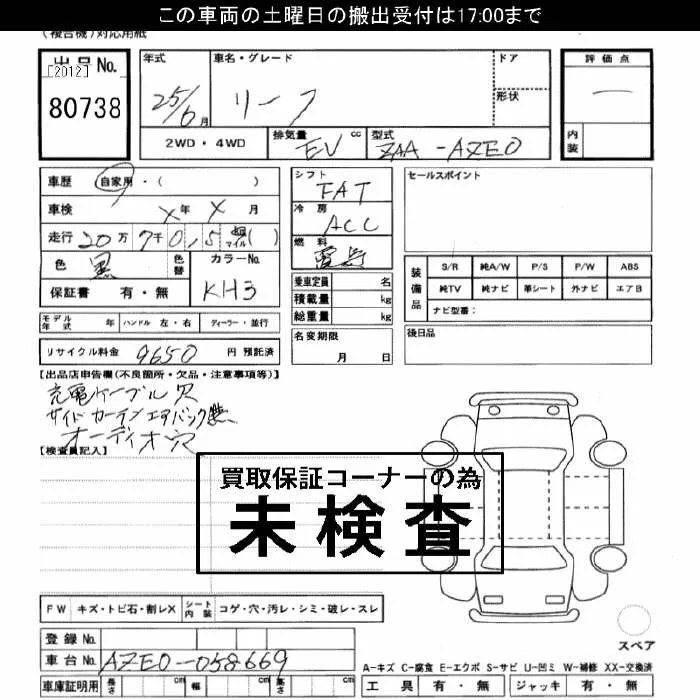 この車両の土曜日の搬出受付は17:00まで
(複合機)対応用紙
出品No.
[2012]
80738
年式
25/6月
車名・グレード
リーフ
ドア
形状
評価点
一
内装
2WD・4WD
排気量 EV cc
型式 ZAA-AZE0
車歴 自家用・( )
車検 X年 X月
走行 20万 7千 0,5 マイル( )
色 黒 色替
カラーNo. KH3
保証書 有・無
シフト
FAT
冷房
ACC
燃料
電気
乗車定員 名
積載量 kg
総重量 kg
名変期限
月 日
セールスポイント
装備品
S/R 純A/W P/S P/W ABS
純TV 純ナビ 革シート 外ナビ エアB
ナビ型番:
後日品
モデル年式 年 ハンドル 左・右 ディーラー・並行
リサイクル料金 9650 円 預託済
【出品店申告欄(不良箇所・欠品・注意事項等)】
充電ケーブル欠
サイドカーテンエアバック無
オーディオ欠
【検査員記入】
買取保証コーナーの為
未検査
FW キズ・トビ石・割レX シート内装 コゲ・穴・汚レ・シミ・破レ・スレ
登録No.
車台No. AZE0-058669
車庫証明用 長さ cm 幅 cm 高さ cm
スペア
A-キズ C-腐食 E-エクボ S-サビ U-凹ミ W-補修 XX-交換済
工具 有・無 ジャッキ 有・無